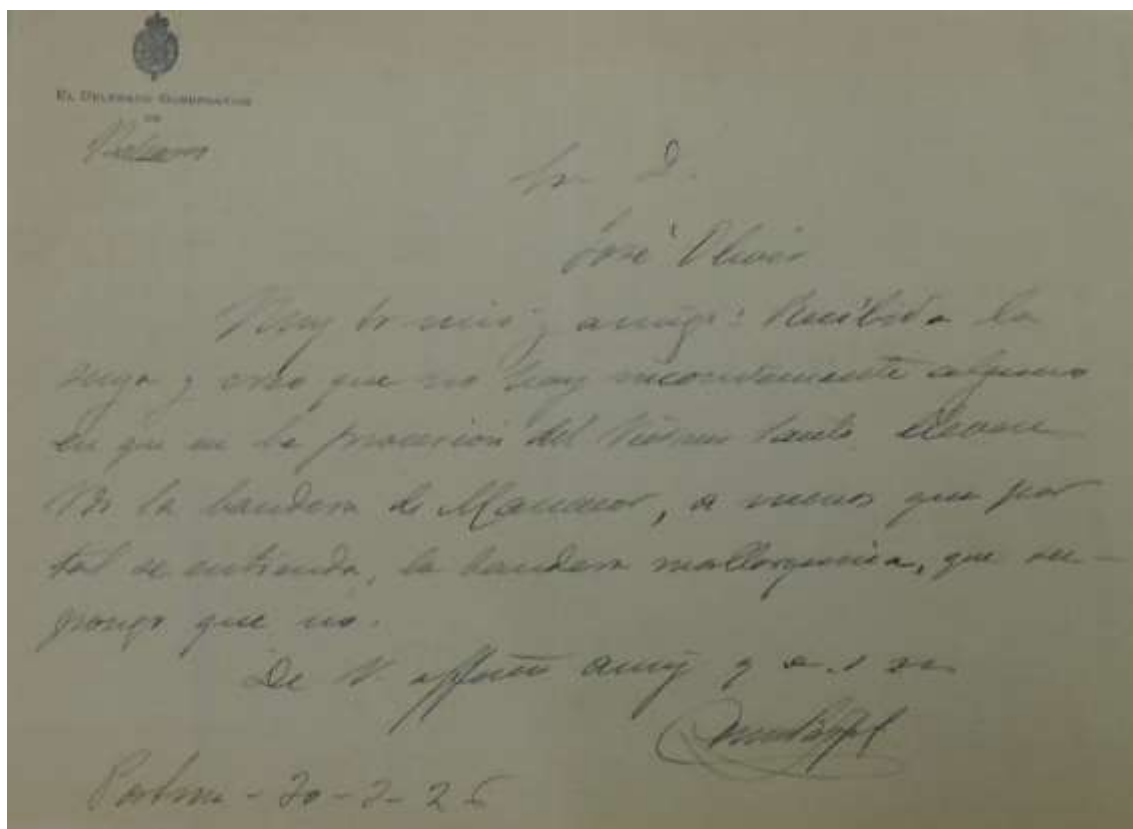 EL DELEGADO GUBERNATIVO
DE
Sr. D.
José Oliver
Muy Sr. mio y amigo: Recibida la
suya y creo que no hay inconveniente alguno
en que en la procesion del Viernes Santo lleven
Vds la bandera de Manacor, a menos que por
tal se entienda, la bandera mallorquina, que su-
pongo que no.
De V. affmo amigo y s. s.
Palma - 30-3-25